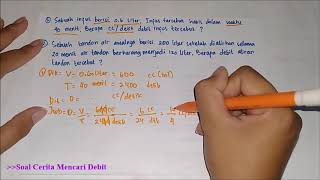 ① Sebuah infus berisi 0.6 liter. Infus tersebut habis dalam waktu
40 menit. Berapa cc/detik debit infus tersebut ?
② Sebuah tandon air awalnya berisi 200 liter setelah dialirkan selama
20 menit berkurang menjadi 120 liter. Berapa debit aliran
tandon tersebut ?
① Dik : V = 0.60 liter = 600 cc (ml)
T = 40 menit = 2400 detik
Dit = D = cc/detik
Jwb = D = V/T = 600 cc/2400 detik = 6 cc/24 dtk = 1/4
>>Soal Cerita Mencari Debit